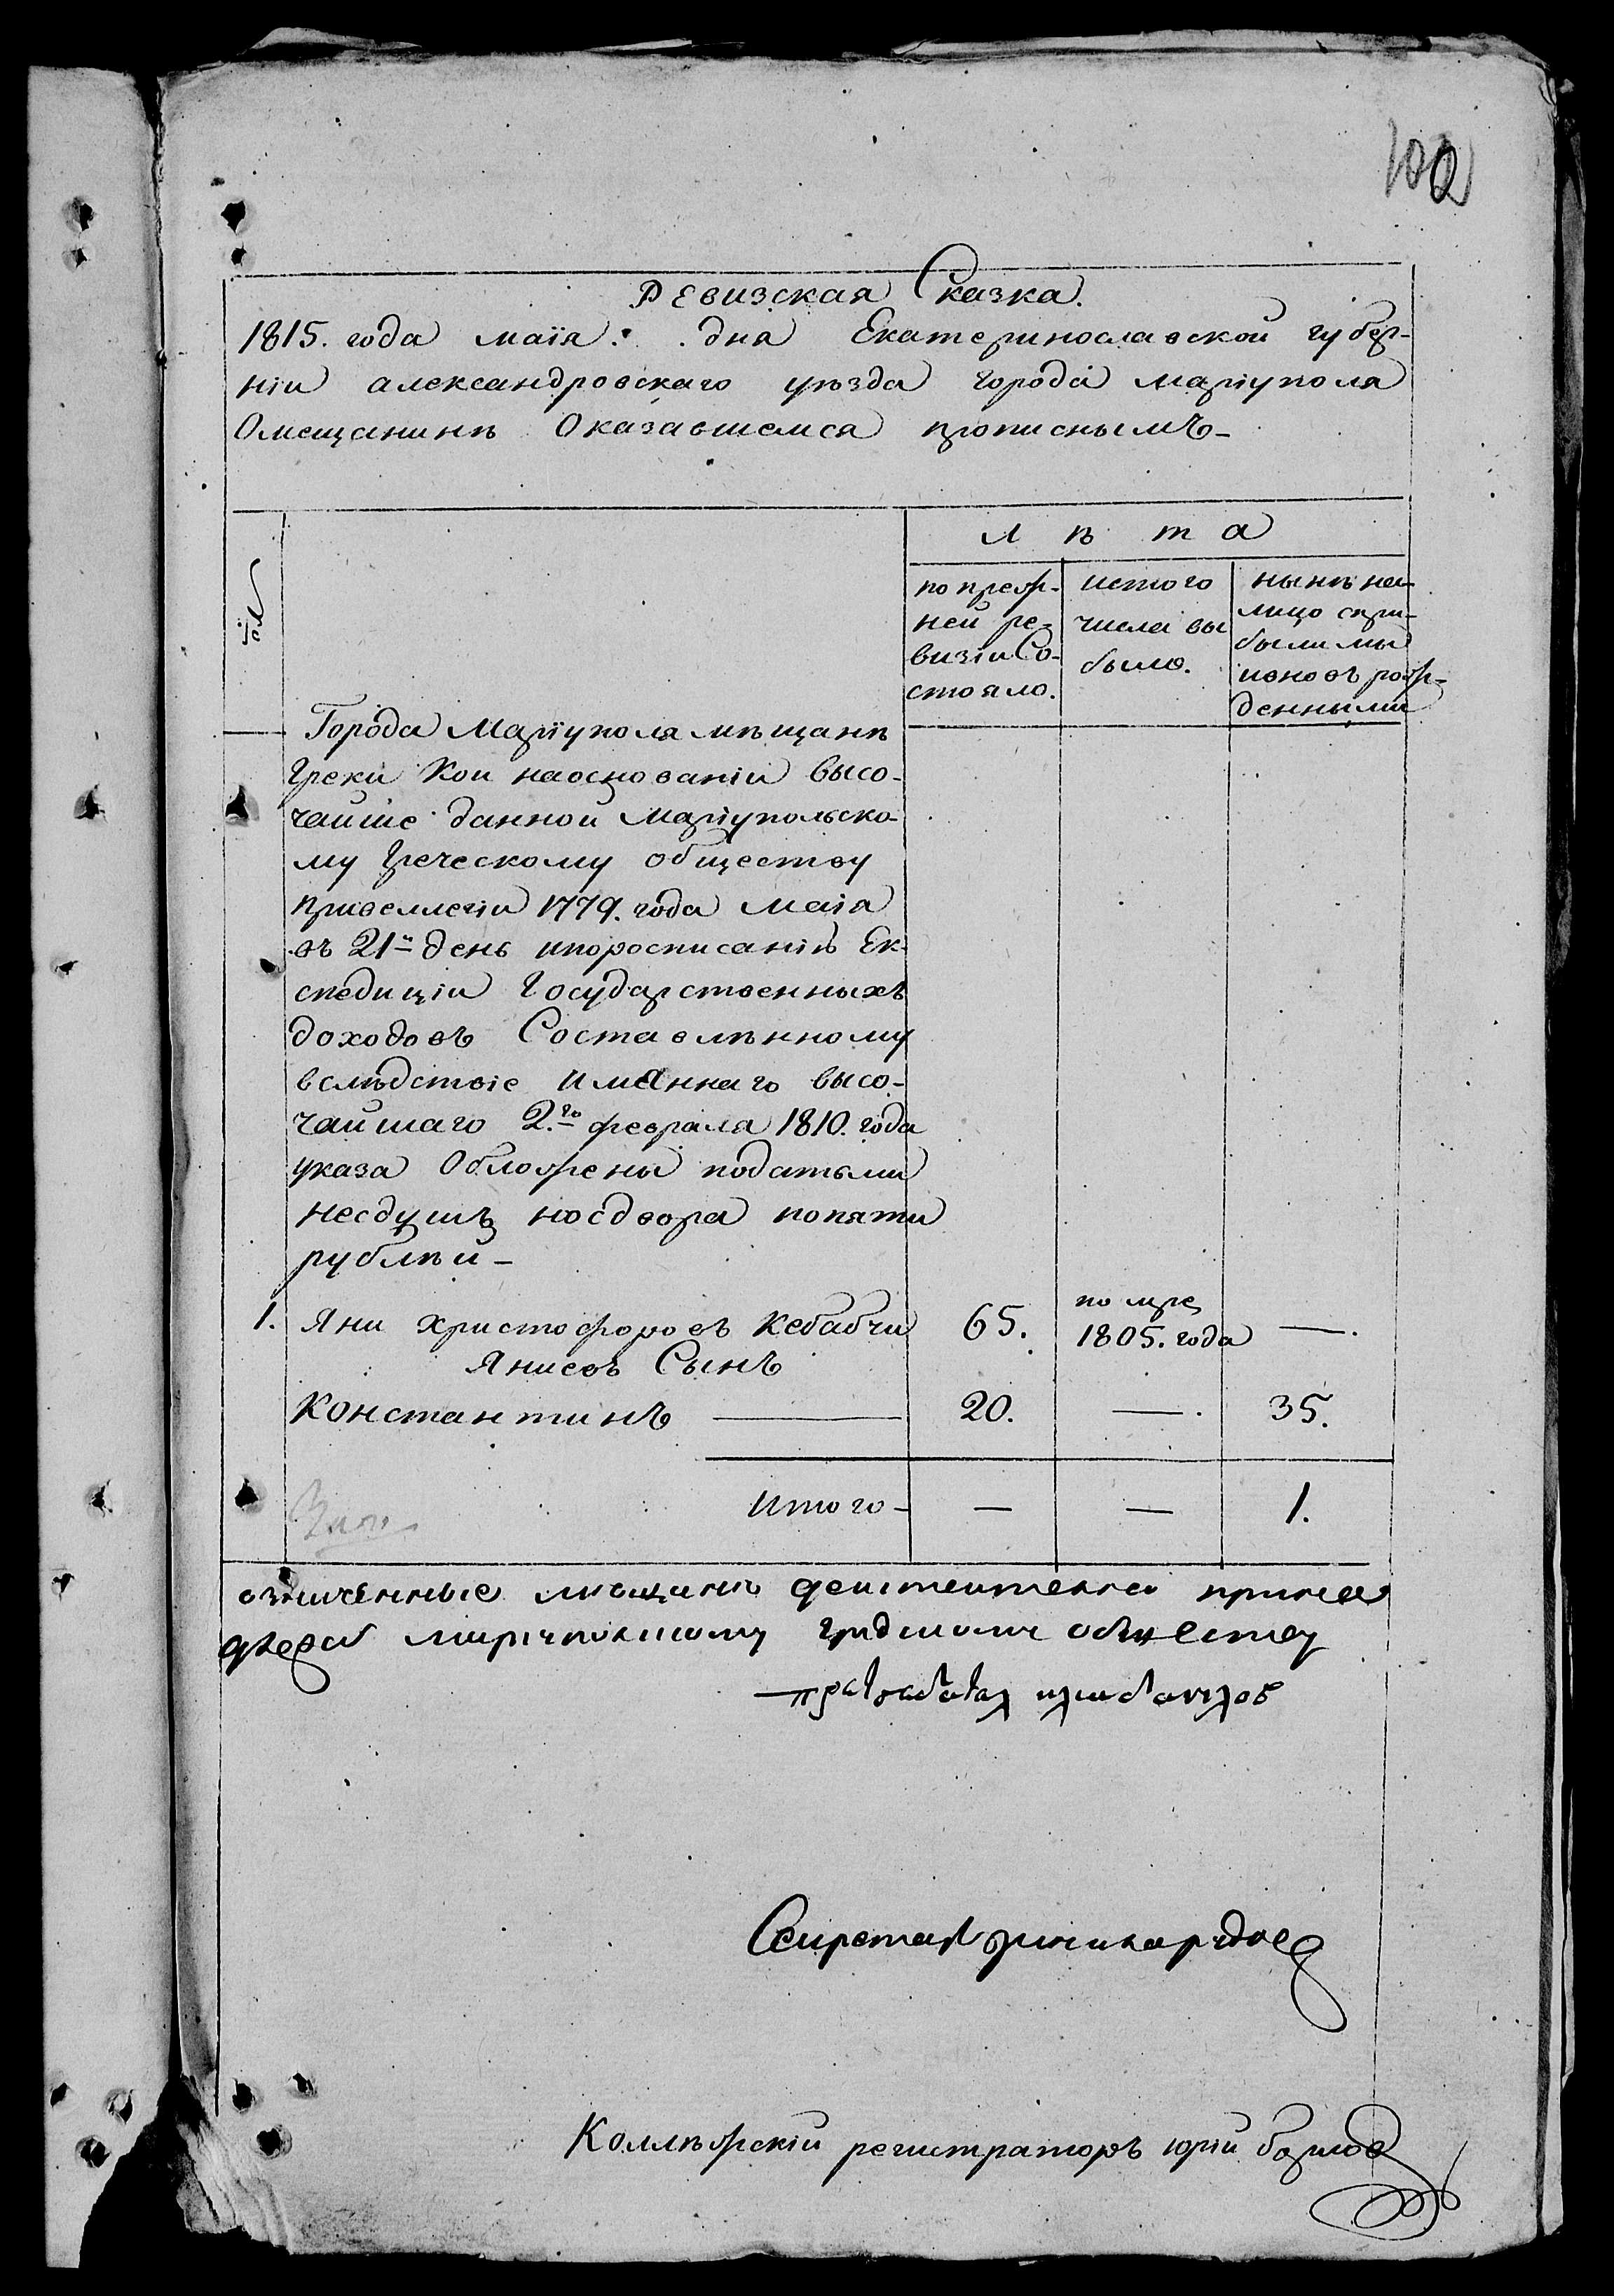 102
Ревизская Сказка.
1815. года маїя . . дня Екатеринославской губер-
ніи александровскаго уѣзда города мариуполя
Омещанинѣ Оказавшемся прописнымъ-
лѣта
по преж-
ней ре-
визіи Со-
стояло.
истого
числа вы
было.
нынѣ на
лицо спри-
былыми
ивновъ рож-
денными
Города Мариуполя мѣщанѣ
Греки Кои наоснованіи высо-
чайше данной Мариупольско-
му Греческому обществу
привеллегіи 1779. года маія
въ 21й день ипоросписанію Ек-
спедиціи Государственныхъ
доходовъ Составлѣнному
вслѣдствіе имяннаго высо-
чайшаго 2.го февраля 1810. года
указа Обложены податьми
несдушъ носдвора попяти
рублѣй-
1. Яни христофоровъ Кебабчи 65. по мре 1805. года —.
Янисовъ Сынъ
Константинъ — 20. —. 35.
Итого- — — 1.
означенные мѣщанѣ
обществу
Секретарь
Коллѣжскій регистраторъ юрій